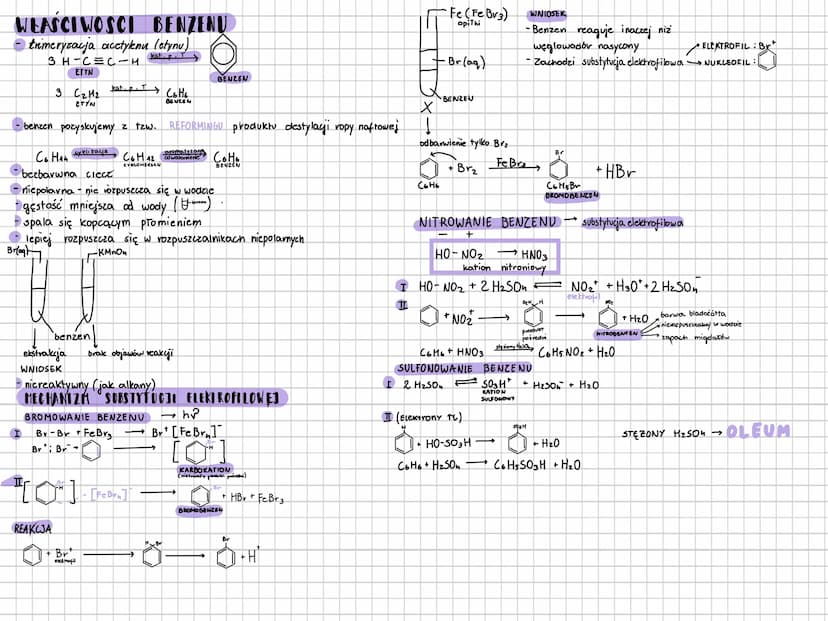 WŁAŚCIWOŚCI BENZENU
- trimeryzacja acetylenu (etynu)
3 H-C≡C-H kat. p, T
ETYN
BENZEN
3 C2H2 kat. p, T C6H6
ETYN BENZEN
- benzen pozyskujemy z tzw. REFORMINGU produktu destylacji ropy naftowej
C6H14 cyklizacja C6H12 C6H6
BENZEN
- bezbarwna ciecz
- niepolarna - nie rozpuszcza się w wodzie
- gęstość mniejsza od wody
- spala się kopcącym płomieniem
- lepiej rozpuszcza się w rozpuszczalnikach niepolarnych
Br(aq) KMnO4
benzen
ekstrakcja brak objawów reakcji
WNIOSEK
- niereaktywny (jak alkany)
MECHANIZM SUBSTYTUCJI ELEKTROFILOWEJ
BROMOWANIE BENZENU → h?
I Br-Br + FeBr3 → Br+ [FeBr4]-
Br+ ; Br- →
KARBOKATION
II [ ] - [FeBr4]- → + HBr + FeBr3
BROMOBENZEN
REAKCJA
+ Br+ → → + H+
Br
Fe (FeBr3)
opiłki
Br(aq)
BENZEN
X
odbarwienie tylko Br2
+ Br2 FeBr3 → + HBr
Br
C6H6 C6H5Br
BROMOBENZEN
WNIOSEK
- Benzen reaguje inaczej niż
węglowodór nasycony
- Zachodzi substytucja elektrofilowa
ELEKTROFIL : Br+
NUKLEOFIL :
NITROWANIE BENZENU → substytucja elektrofilowa
- +
HO-NO2 → HNO3
kation nitroniowy
I HO-NO2 + 2 H2SO4 ⇌ NO2+ + H3O+ + 2 HzSO4-
elektrofil
II + NO2+ → → + H2O
NITROBENZEN
barwa bladożółta
nierozpuszczalny w wodzie
zapach migdałów
C6H6 + HNO3 → C6H5NO2 + H2O
SULFONOWANIE BENZENU
I 2 H2SO4 ⇌ SO3H+ + HSO4- + H2O
KATION
SULFONOWY
II (ELEKTRONY π)
+ HO-SO3H → + H2O
C6H6 + H2SO4 → C6H5SO3H + H2O
STĘŻONY H2SO4 → OLEUM